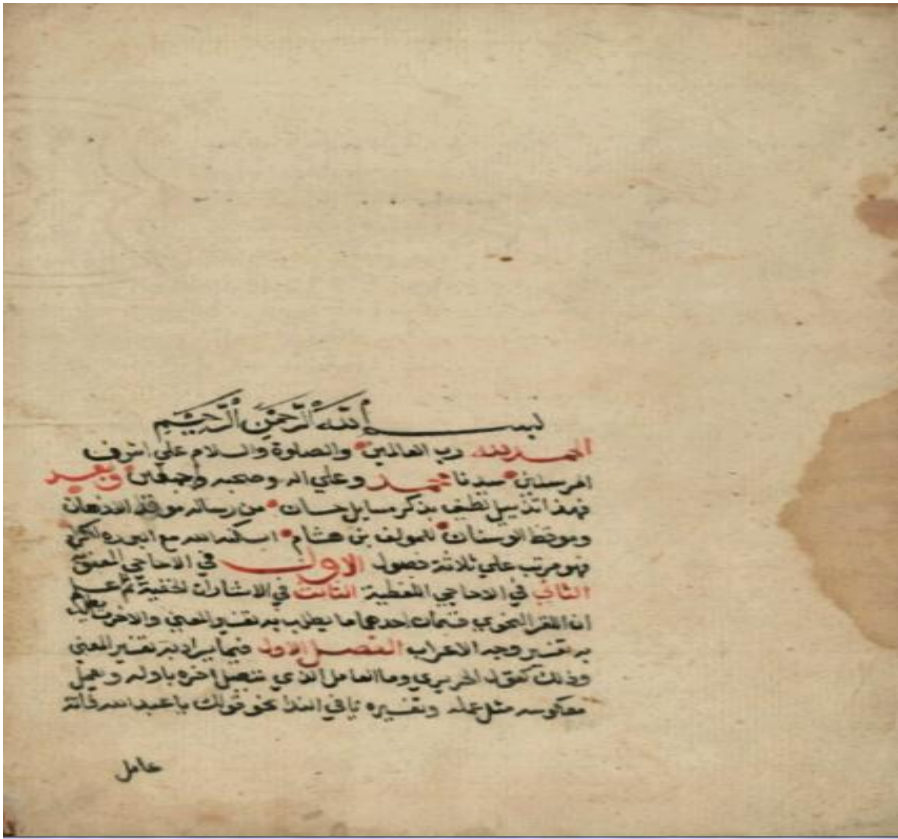 بسم الله الرحمن الرحيم
الحمد لله رب العالمين والصلوة والسلام علي اشرف
المرسلين سيدنا محمد وعلي اله وصحبه اجمعين وبعد
فهذا تذييل لطيف بذكر مسايل حسان من رسالة موقد الاذهان
وموقظ الوسنان للمولف بن هشام اسكنه الله مع البررة
فهو مرتب علي ثلاثة فصول الاول في الاحاجي المعنوية
الثاني في الاحاجي اللفظية الثالث في الاشارات الخفية ثم اعلم
ان اللغز النحوي قسمان احدهما ما يطلب به تفسير المعني والاخر ما يطلب
به تفسير وجه الاعراب الفصل الاول فيما يراد به تفسير المعني
وذلك كقول الحريري وما العامل الذي يتصل اخره باوله ويعمل
معكوسه مثل عمله وتفسيره يا في الندا نحو قولك يا عبد الله فانه
عامل